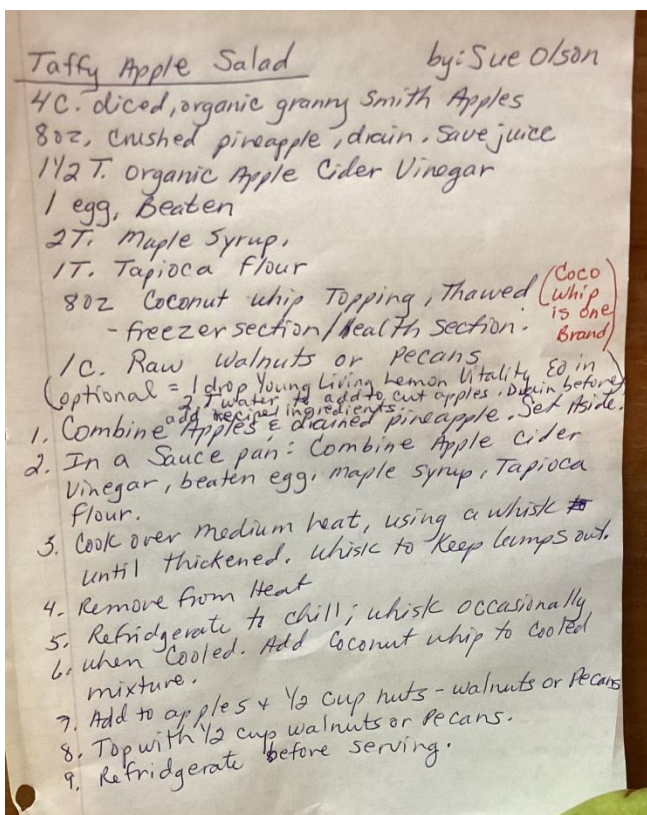 Taffy Apple Salad by: Sue Olson
4C. diced, organic granny Smith Apples
8oz, Crushed pineapple, drain. Save juice
1 1/2 T. organic Apple Cider Vinegar
1 egg, Beaten
2T. Maple Syrup.
1T. Tapioca flour
8oz Coconut whip Topping, Thawed (Coco
whip
is one
Brand)
- freezer section/Health Section.
1c. Raw walnuts or pecans
(optional = 1 drop Young Living Lemon Vitality EO in
2 T water to add to cut apples. Drain before
add recipe ingredients.)
1. Combine Apples & drained pineapple. Set Aside.
2. In a Sauce pan: Combine Apple cider
Vinegar, beaten egg, maple syrup, Tapioca
flour.
3. Cook over medium heat, using a whisk
until thickened. Whisk to keep lumps out.
4. Remove from Heat
5. Refridgerate to chill; whisk occasionally
6. when Cooled. Add Coconut whip to cooled
mixture.
7. Add to apples + 1/2 cup nuts - walnuts or Pecans
8. Top with 1/2 cup walnuts or Pecans.
9. Refridgerate before serving.